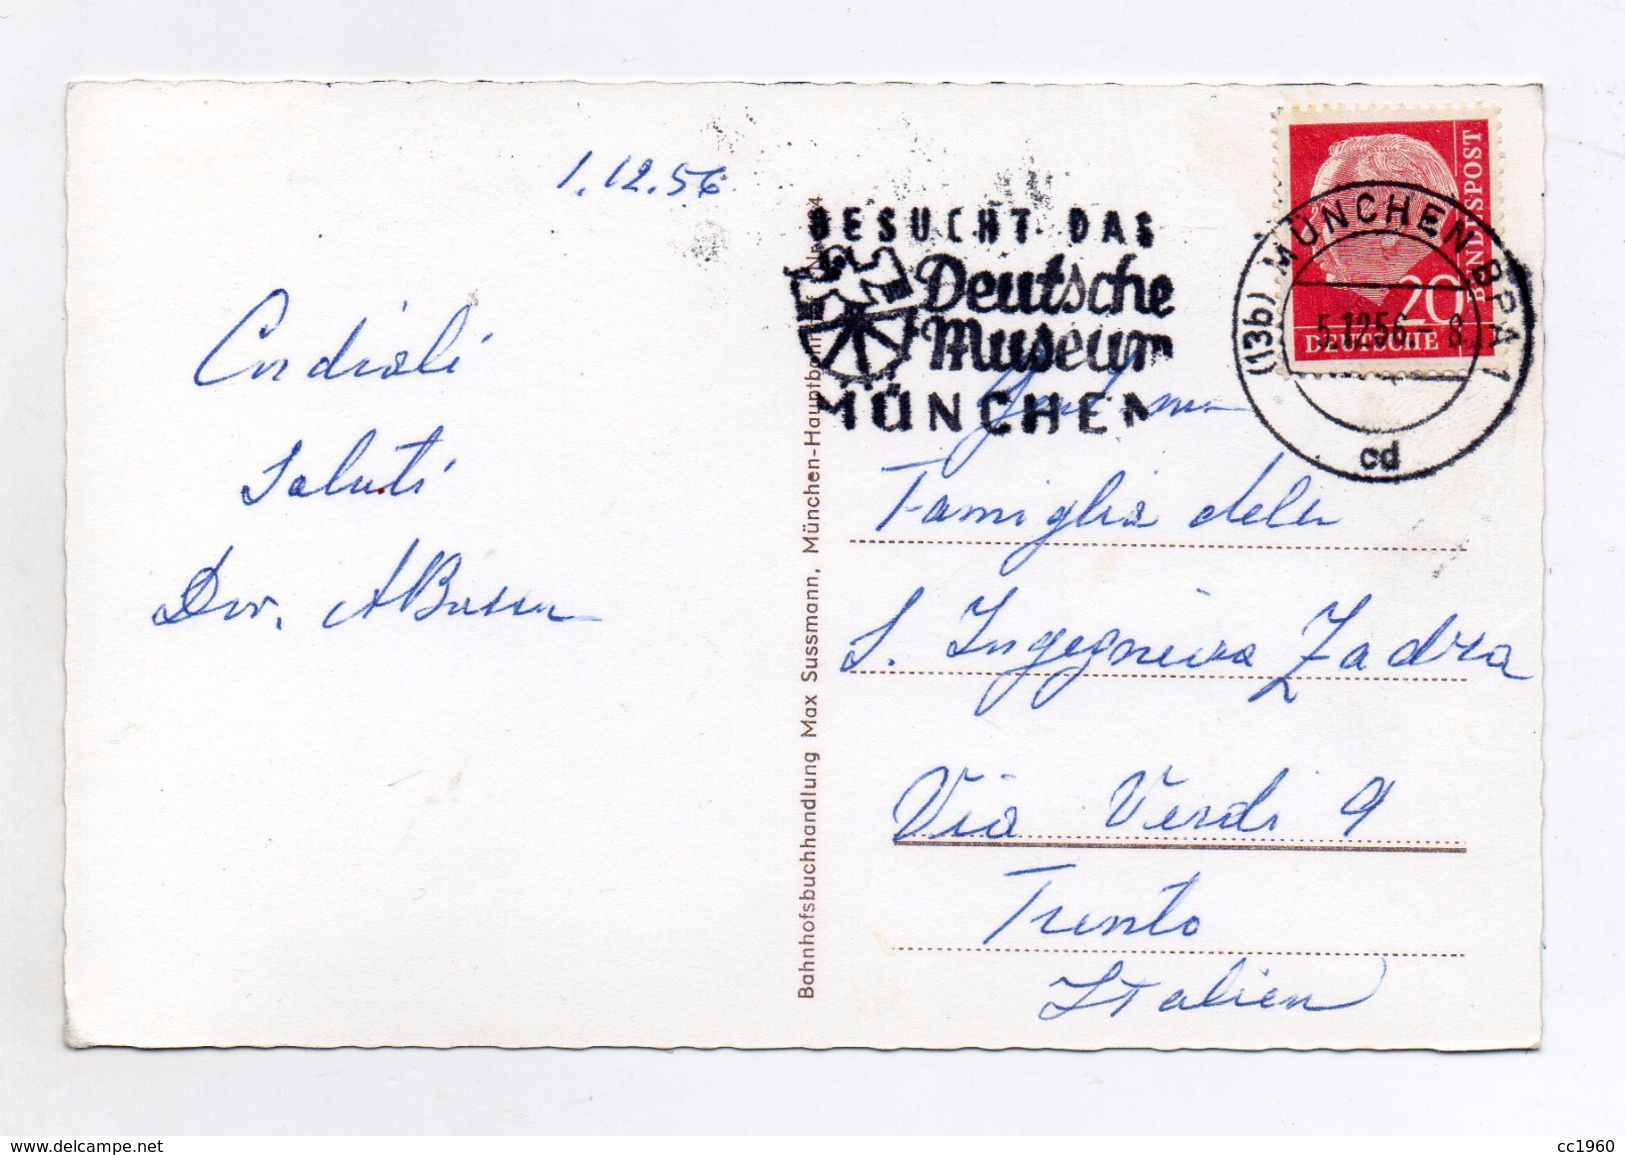 1.12.56
Cordiali
Saluti
Dor. ABusen
BESUCHT DAS
Deutsche
Museum
MÜNCHEN
(13b) MÜNCHEN BPA 1
5.12.56.-8
cd
20
DEUTSCHE
BUNDESPOST
Famiglia
S. Ingegniera Zadra
Via Verdi 9
Trento
Italien
Bahnhofsbuchhandlung Max Sussmann, München-Hauptbahnhof
www.delcampe.net
cc1960